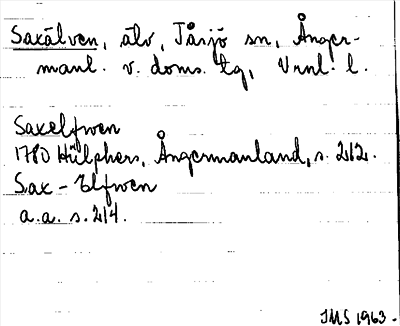 Saxälven, älv, Tåsjö sn, Ånger-
manl. v. doms. tg, Vrnl. l.
Saxelfwen
1780 Hülphers, Ångermanland, s. 212.
Sax-Elfwen
a.a. s. 214.
IMS 1963.